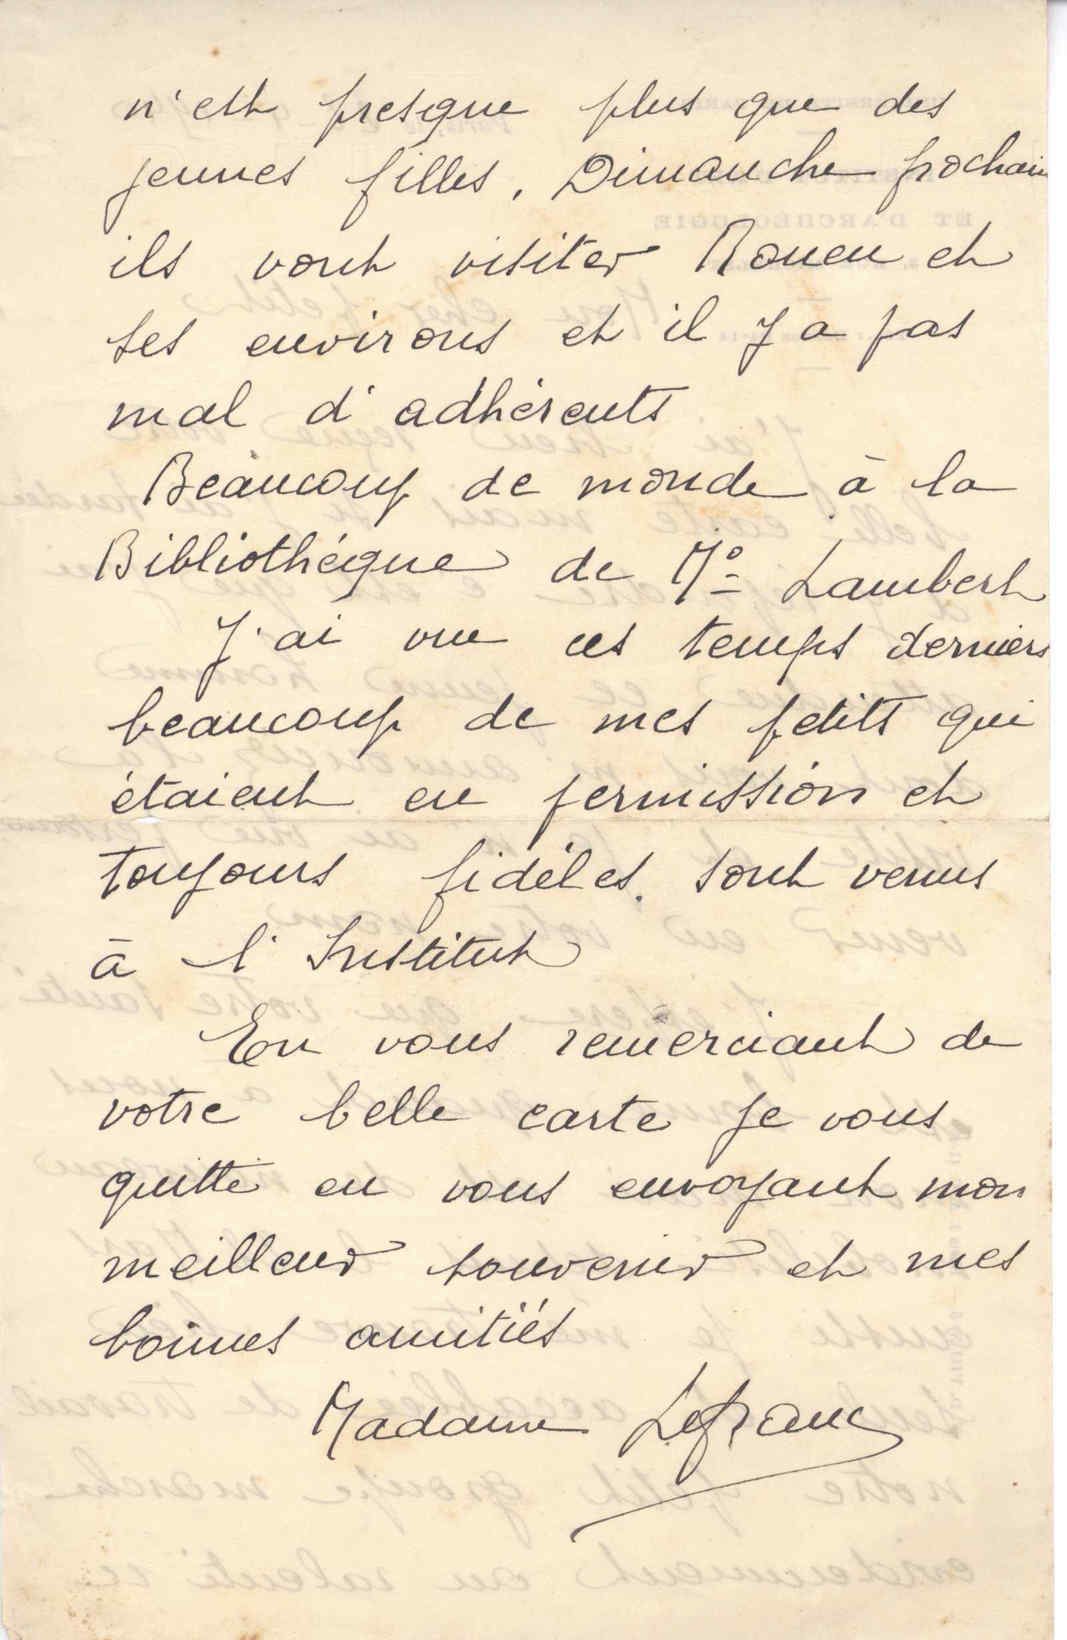 n'est presque plus que des
jeunes filles, Dimanche prochain
ils vont visiter Rouen et
ses environs et il y a pas
mal d'adhérents
Beaucoup de monde à la
Bibliothèque de Mº Lambert
J'ai vu ces temps derniers
beaucoup de mes petits qui
étaient en permission et
toujours fidèles. sont venus
à l'Institut
En vous remerciant de
votre belle carte je vous
quitte en vous envoyant mon
meilleur souvenir et mes
bonnes amitiés
Madame Lefranc